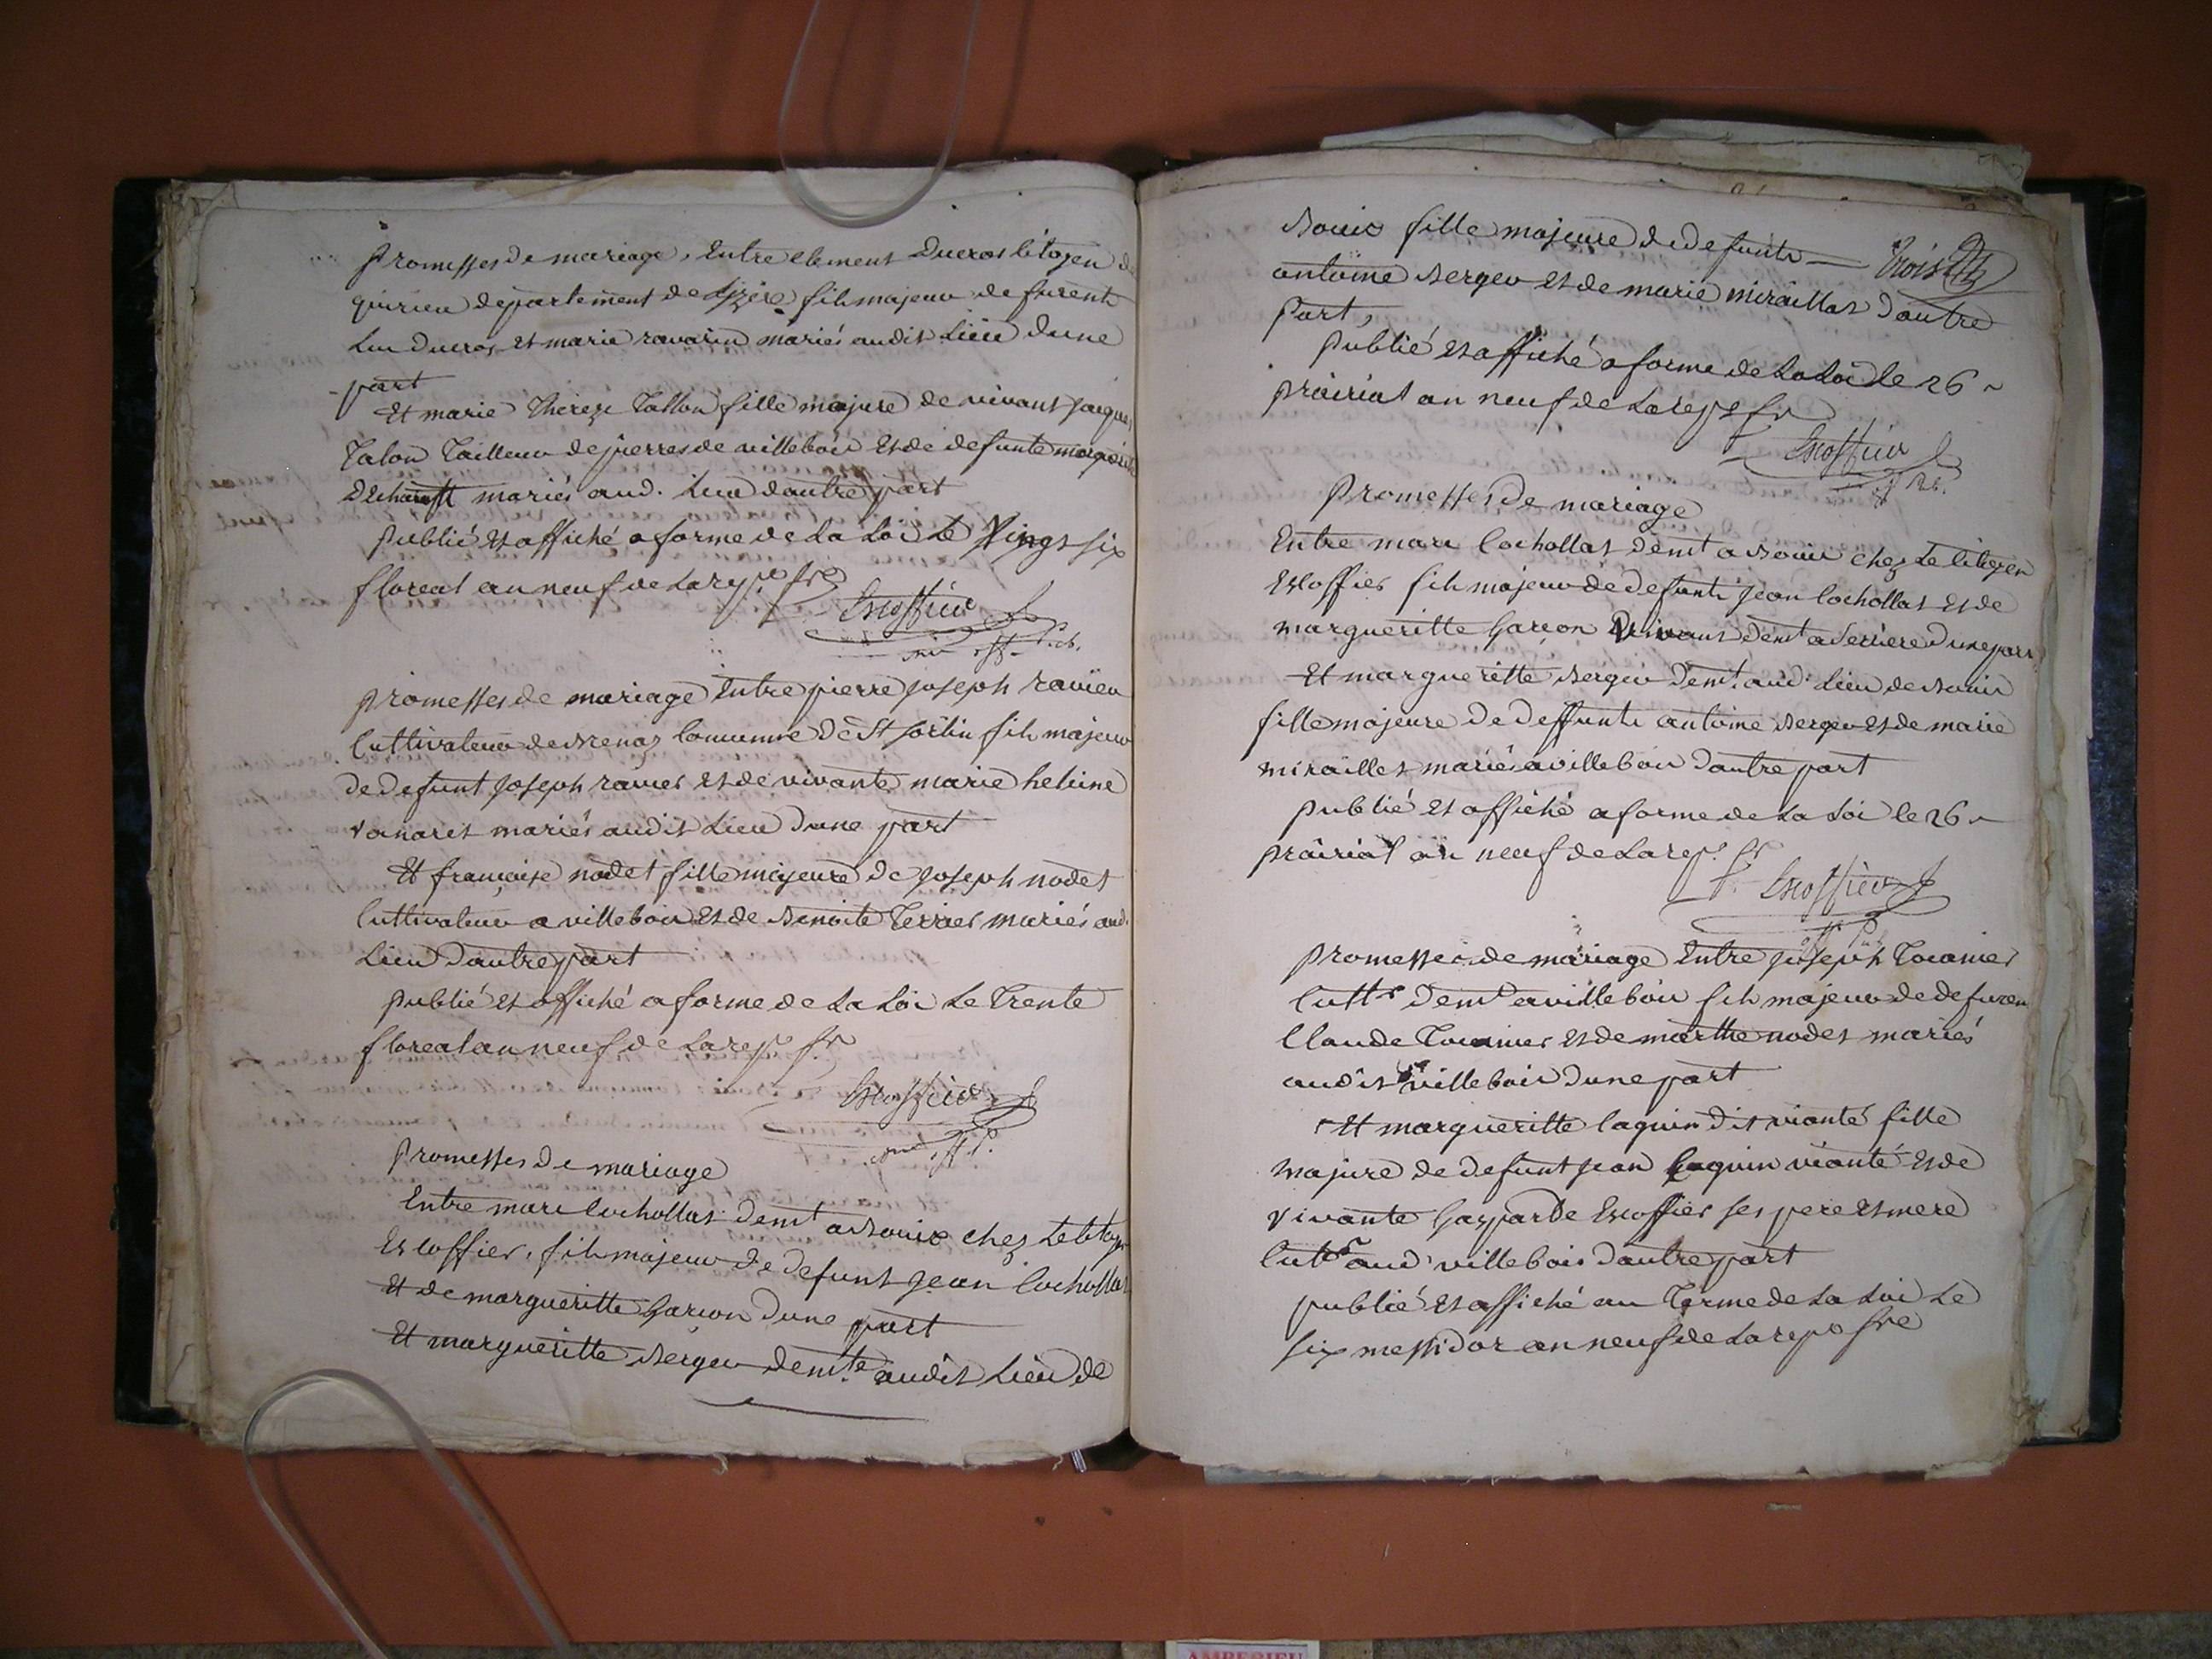 promesses de mariage, Entre Clement Ducros Citoyen de
quirieu departement de Lizere fils majeur de furent
Luc Ducros et marie ravarin mariés audit Lieu dune
part
Et marie Thereze Tallon fille majure de vivant Jacques
Talon Tailleur de pierres de villebois et de defunte
mariés aud. Lieu dautre part
publié et affiché a forme de La Loi Le Vingt six
floreal an neuf de La rep. fr
Escoffier
promesses de mariage Entre pierre joseph ravier
Cultivateur de Commune de St sorlin fils majeur
de defunt joseph ravier et de vivante marie heleine
vanaret mariés audit Lieu Dune part
Et francoise nodet fille majeure de joseph nodet
Cultivateur a villebois et de Benoite Terrier mariés aud.
Lieu Dautre part
publié et affiché a forme de La Loi Le Trente
floreal an neuf de La rep fr
Escoffier
Promesses de mariage
Entre marc Cochollat demt a Bouis chez Le Citoyen
Escoffier, fils majeur de defunt jean Cochollat
Et de margueritte garcon Dune part
Et margueritte Berger demte audit Lieu de
Bouis fille majeure de defunts — Trois
antoine Berger et de marie miraillat Dautre
part,
publié et affiché a forme de La Loi Le 26
prairial an neuf de La rep fr
Escoffier
promesses De mariage
Entre marc Cochollat demt a Bouis chez Le Citoyen
Escoffier fils majeur de defunt jean Cochollat et de
margueritte garcon vivans demt a Serriere Dune part
Et margueritte Berger demt. aud. Lieu de Bouis
fille majeure De deffunts antoine Berger et de marie
miraillet mariés a villebois Dautre part
publié et affiché a forme de La Loi le 26
prairial an neuf de La rep. fr
Escoffier
promesses de mariage Entre joseph
Cultr demt a villebois fils majeur de defunt
Claude et de marthe nodet mariés
audit villebois Dune part
Et margueritte Caquin dit vianté fille
majure de defunt jean Caquin vianté et de
vivante Gasparde Escoffier ses pere et mere
Cultr aud. villebois Dautre part
publié et affiché au Terme de La Loi Le
six messidor an neuf de La repe fre